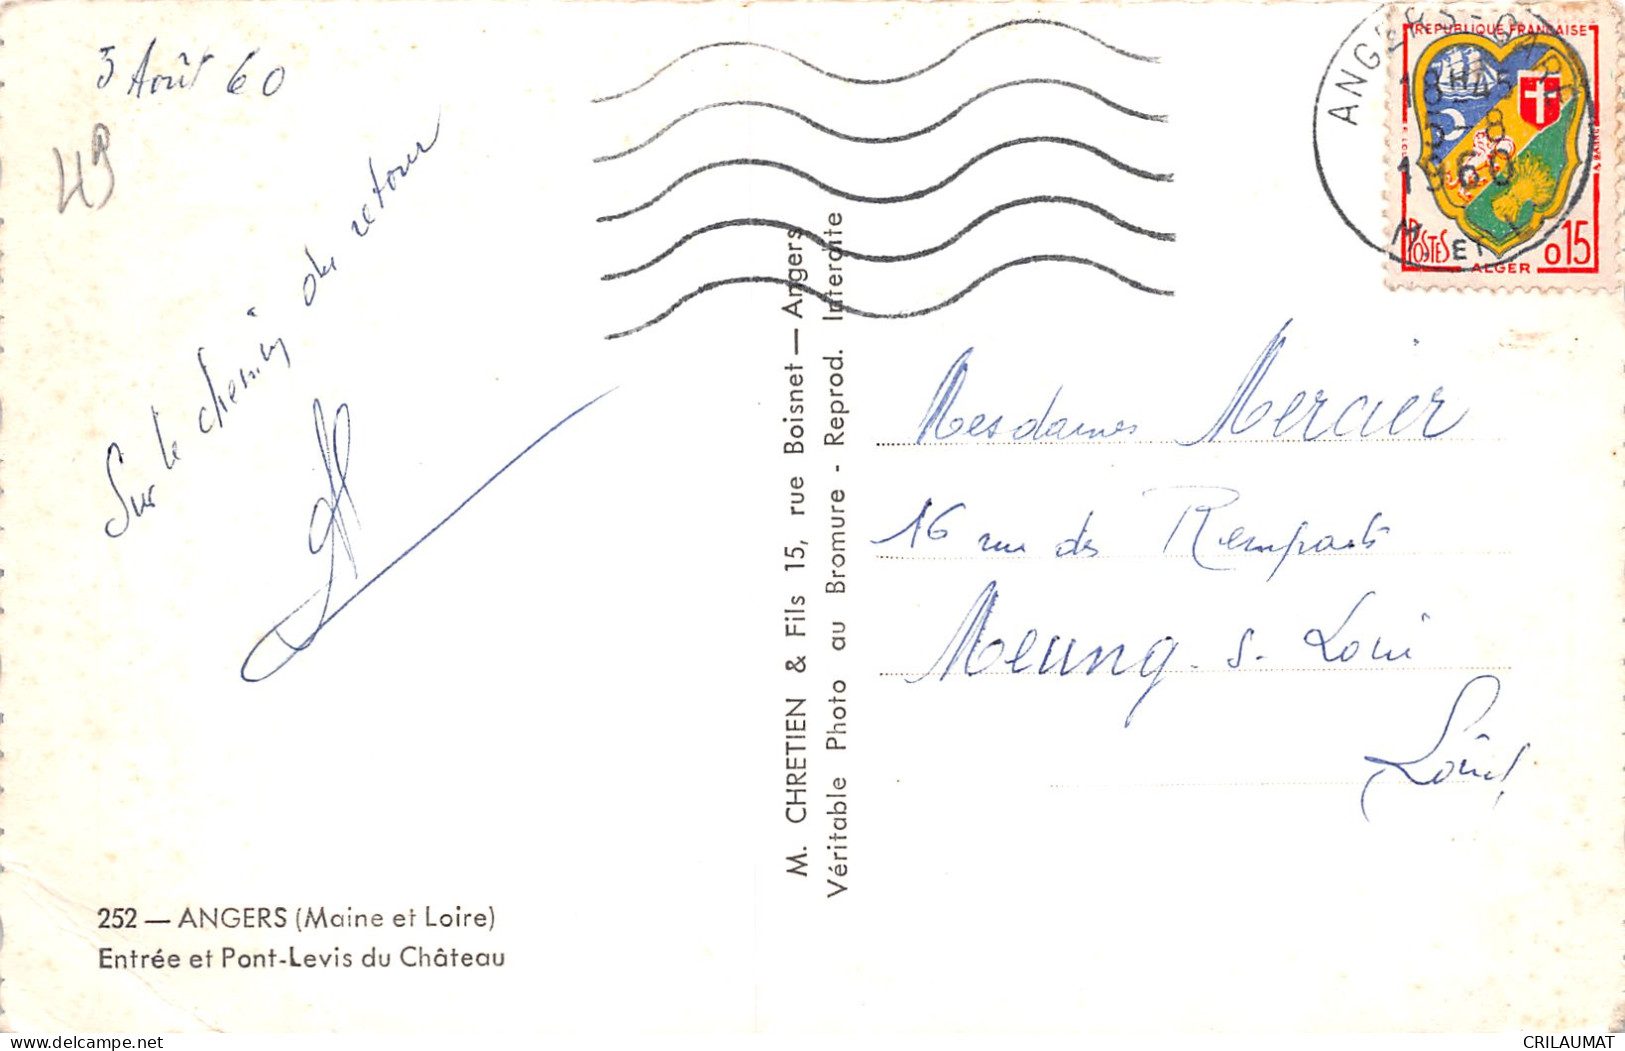 3 Août 60
49
Sur le chemin du retour
252 — ANGERS (Maine et Loire)
Entrée et Pont-Levis du Château
M. CHRETIEN & Fils 15, rue Boisnet — Angers
Véritable Photo au Bromure - Reprod. Interdite
ANGERS-GARE
18H45
3-8
1960
M. ET L.
REPUBLIQUE FRANÇAISE
POSTES
0,15
ALGER
Mesdames Mercier
16 rue des Remparts
Meung-s-Loire
Loiret
CRILAUMAT